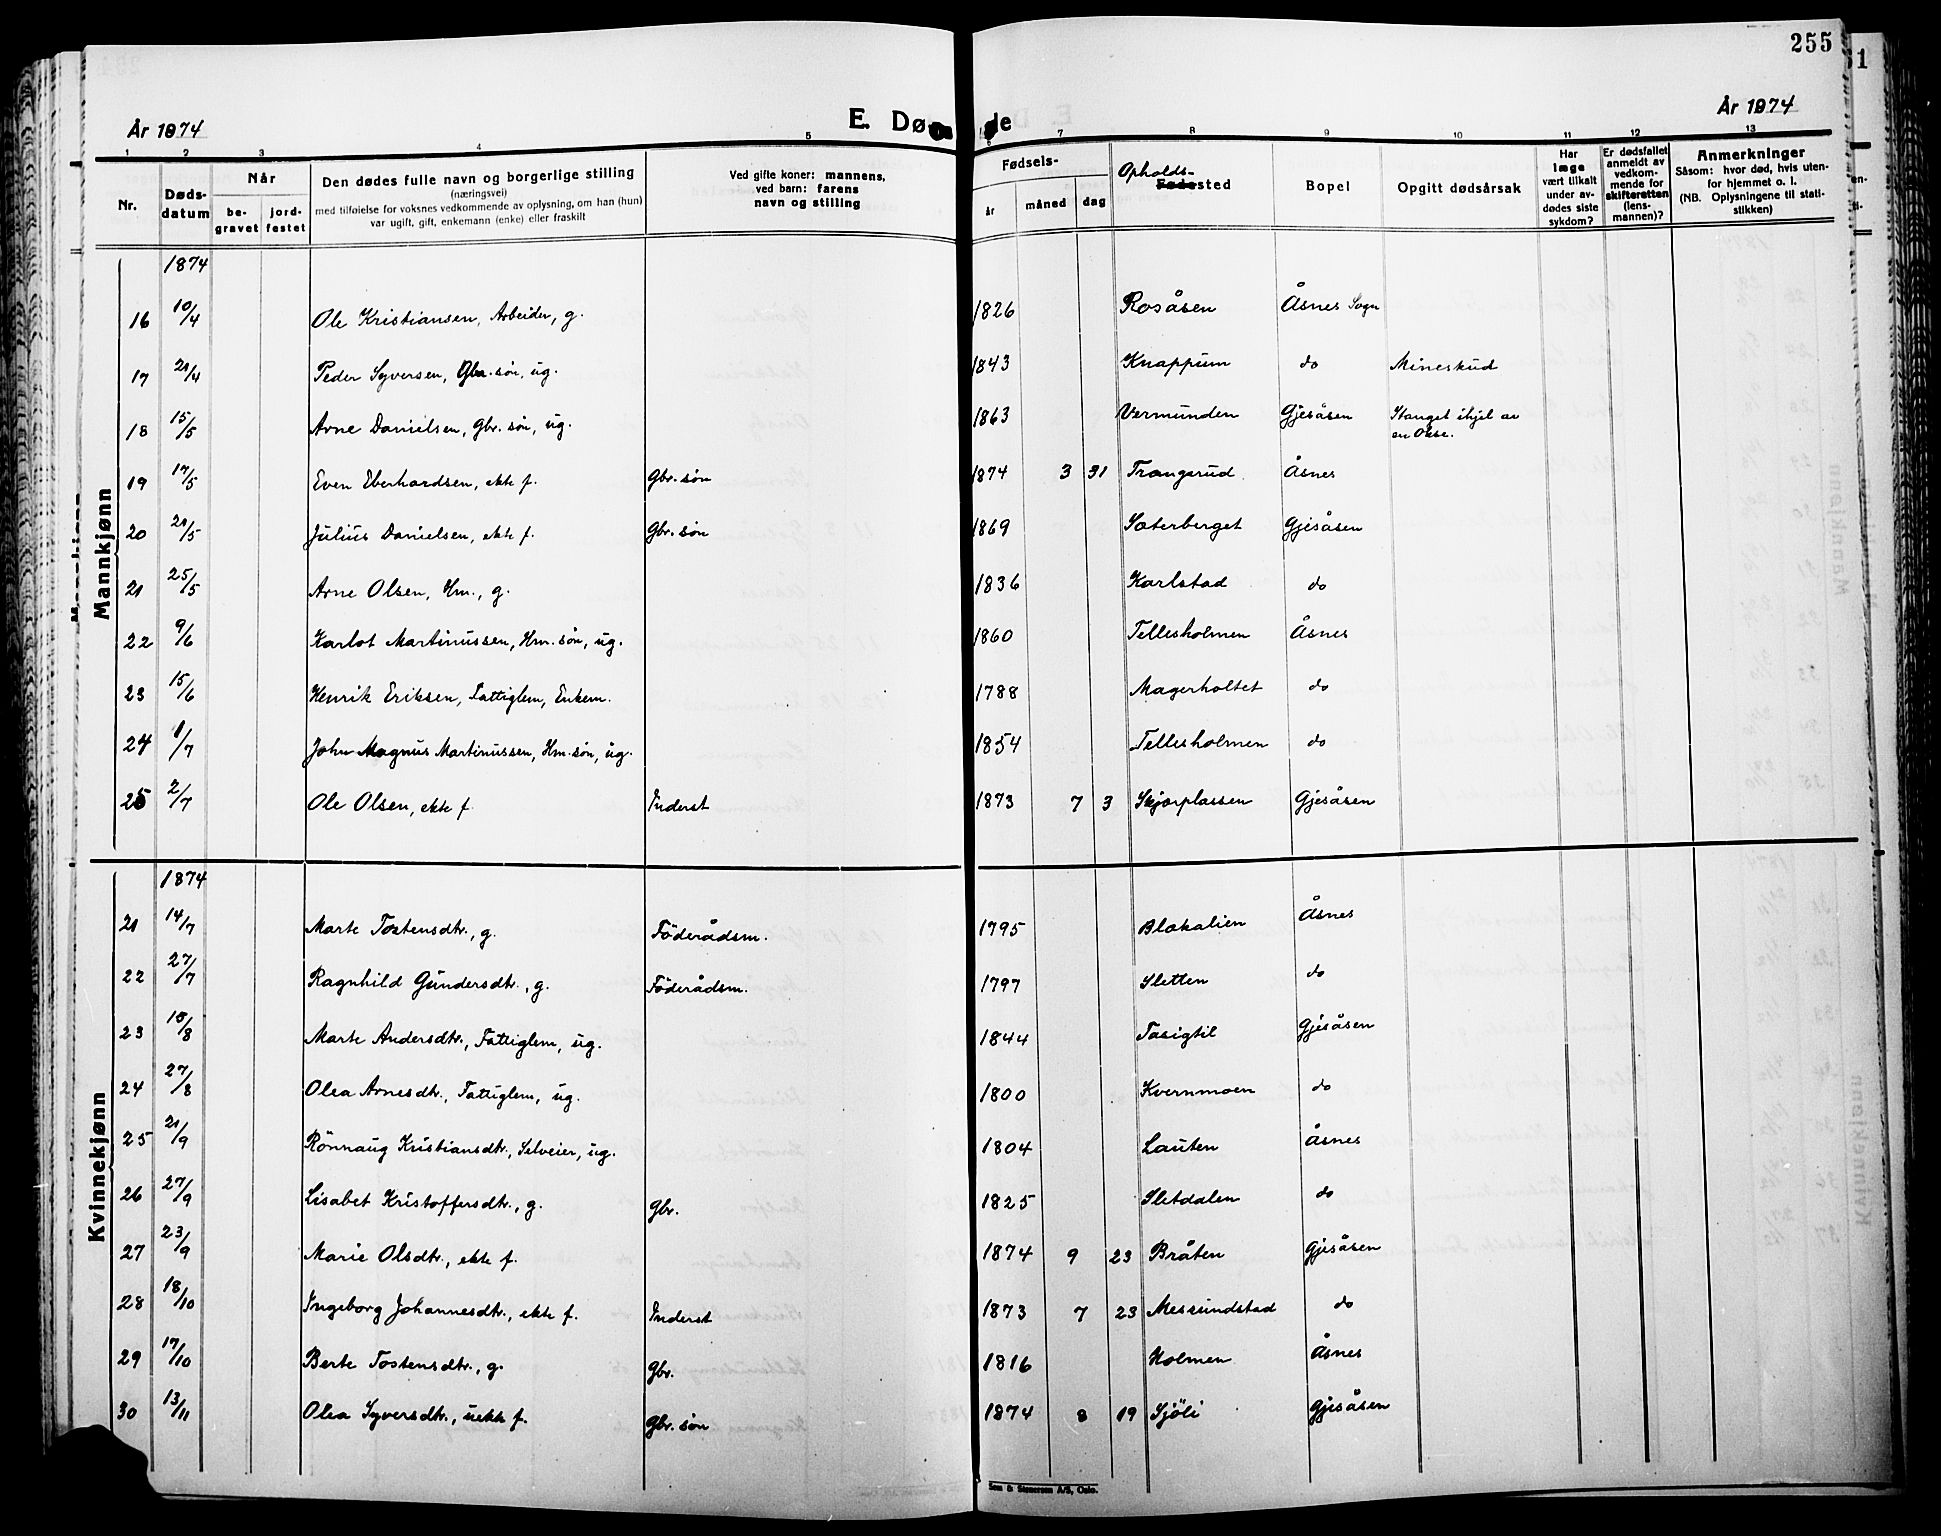 255
År 1874
E. Dø de
År 1874
1 2 3 4 5 6 7 8 9 10 11 12 13
Nr.
Døds-
datum
Når
be-
gravet
jord-
festet
Den dødes fulle navn og borgerlige stilling
(næringsvei)
med tilføielse for voksnes vedkommende av oplysning, om han (hun)
var ugift, gift, enkemann (enke) eller fraskilt
Ved gifte koner: mannens,
ved barn: farens
navn og stilling
Fødsels-
år måned dag
Opholds-
Fødested
Bopel
Opgitt dødsårsak
Har
læge
vært tilkalt
under av-
dødes siste
sykdom?
Er dødsfallet
anmeldt av
vedkom-
mende for
skifteretten
(lens-
mannen)?
Anmerkninger
Såsom: hvor død, hvis uten-
for hjemmet o. l.
(NB. Oplysningene til stati-
stikken)
Mannkjønn
1874
16 10/4 Ole Kristiansen, Arbeider, g. 1826 Rosåsen Åsnes Sogn
17 21/4 Peder Syversen, Gbr. søn, ug. 1843 Knappum do Mineskud
18 15/5 Arne Danielsen, Gbr. søn, ug. 1863 Vermunden Gjesåsen Stanget ihjel av
en Okse.
19 17/5 Even Eberhardsen, ekte f. Gbr. søn 1874 3 31 Trangsrud Åsnes
20 21/5 Julius Danielsen, ekte f. Gbr. søn 1869 Sæterberget Gjesåsen
21 25/5 Arne Olsen, Hm., g. 1836 Karlstad do
22 9/6 Karlot Martinussen, Hm. søn, ug. 1860 Tellesholmen Åsnes
23 15/6 Henrik Eriksen, Fattiglem, Enkem. 1788 Magerholtet do
24 1/7 John Magnus Martinussen, Hm. søn, ug. 1854 Tellesholmen do
25 2/7 Ole Olsen, ekte f. Inderst 1873 7 3 Skjærplassen Gjesåsen
Kvinnekjønn
1874
21 14/7 Marte Tostensdtr., g. Föderådsm. 1795 Blakalien Åsnes
22 27/7 Ragnhild Gundersdtr., g. Föderådsm. 1797 Sletten do
23 18/8 Marte Andersdtr., Fattiglem, ug. 1844 Tasigtil Gjesåsen
24 27/8 Olea Arnesdtr., Fattiglem, ug. 1800 Kvernmoen do
25 21/9 Rönnaug Kristiansdtr., Selveier, ug. 1804 Lauten Åsnes
26 27/9 Lisabet Kristoffersdtr., g. Gbr. 1825 Sletdalen do
27 23/9 Marie Olsdtr., ekte f. 1874 9 23 Bråten Gjesåsen
28 18/10 Ingeborg Johannesdtr., ekte f. Inderst 1873 7 23 Messundstad do
29 17/10 Berte Tostensdtr., g. Gbr. 1816 Holmen Åsnes
30 13/11 Olea Syversdtr., uekte f. Gbr. søn 1874 8 19 Sjöli Gjesåsen
Sem & Stenersen A/S, Oslo.